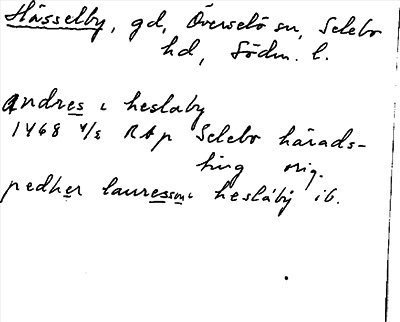 Hässelby, gd, Överselö sn, Selebo
hd, Södm. l.
andres i heslaby
1468 4/5 RAp Selebo härads-
ting orig.
pedher lauresson i heslaby ib.